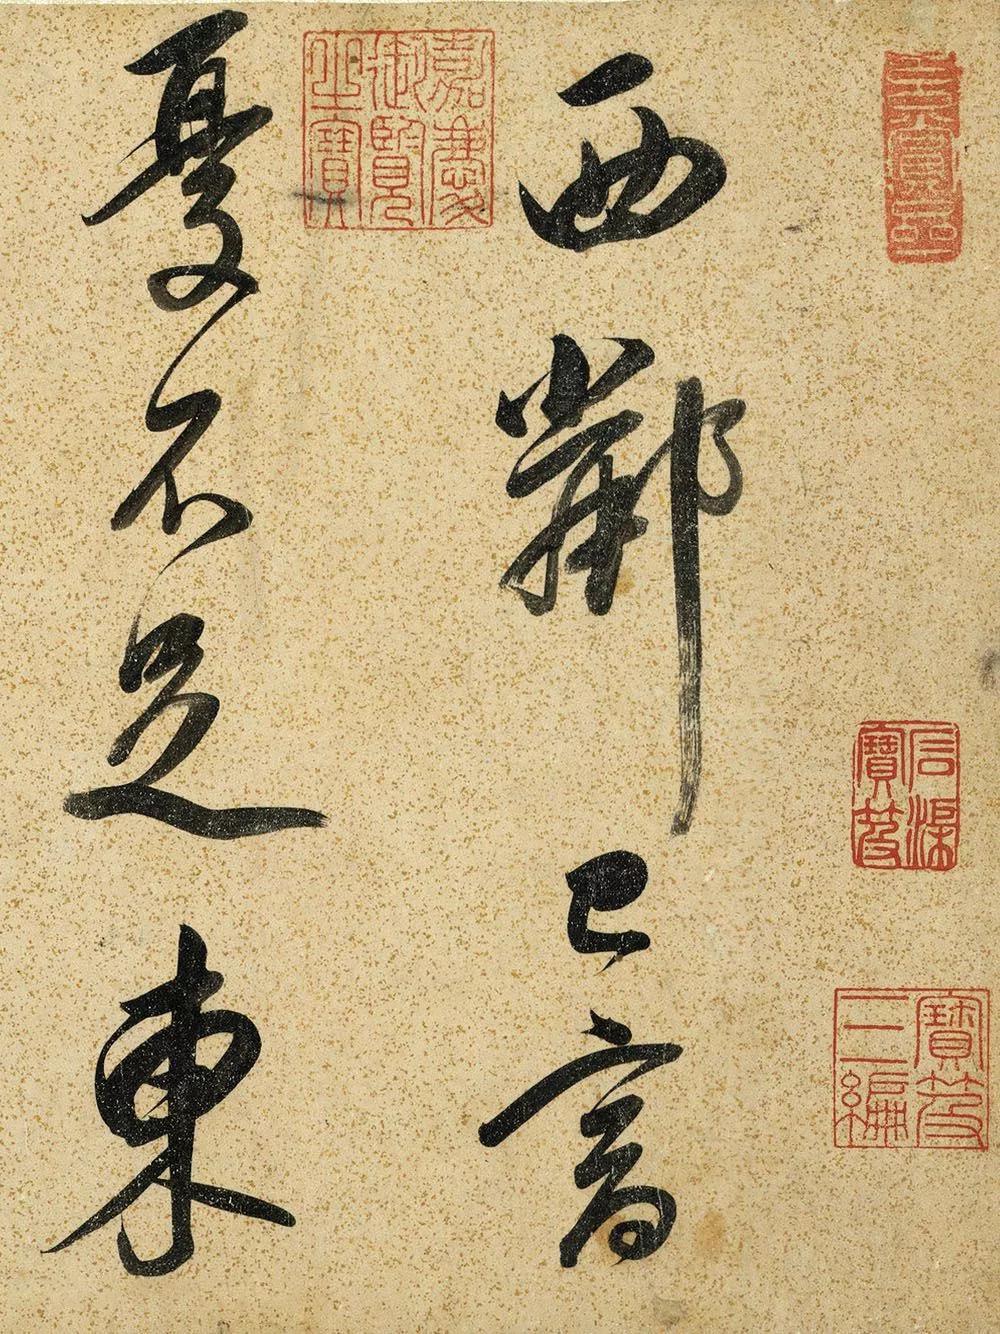 西鄰已富
憂不足東
嘉慶御覽之寶
石渠寶笈
寶笈三編